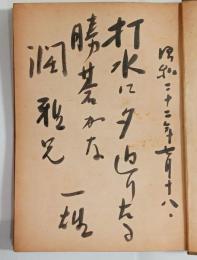 昭和二十二年七月十八、
打水に夕迫りたる
勝碁かな
潤雅兄
一雄